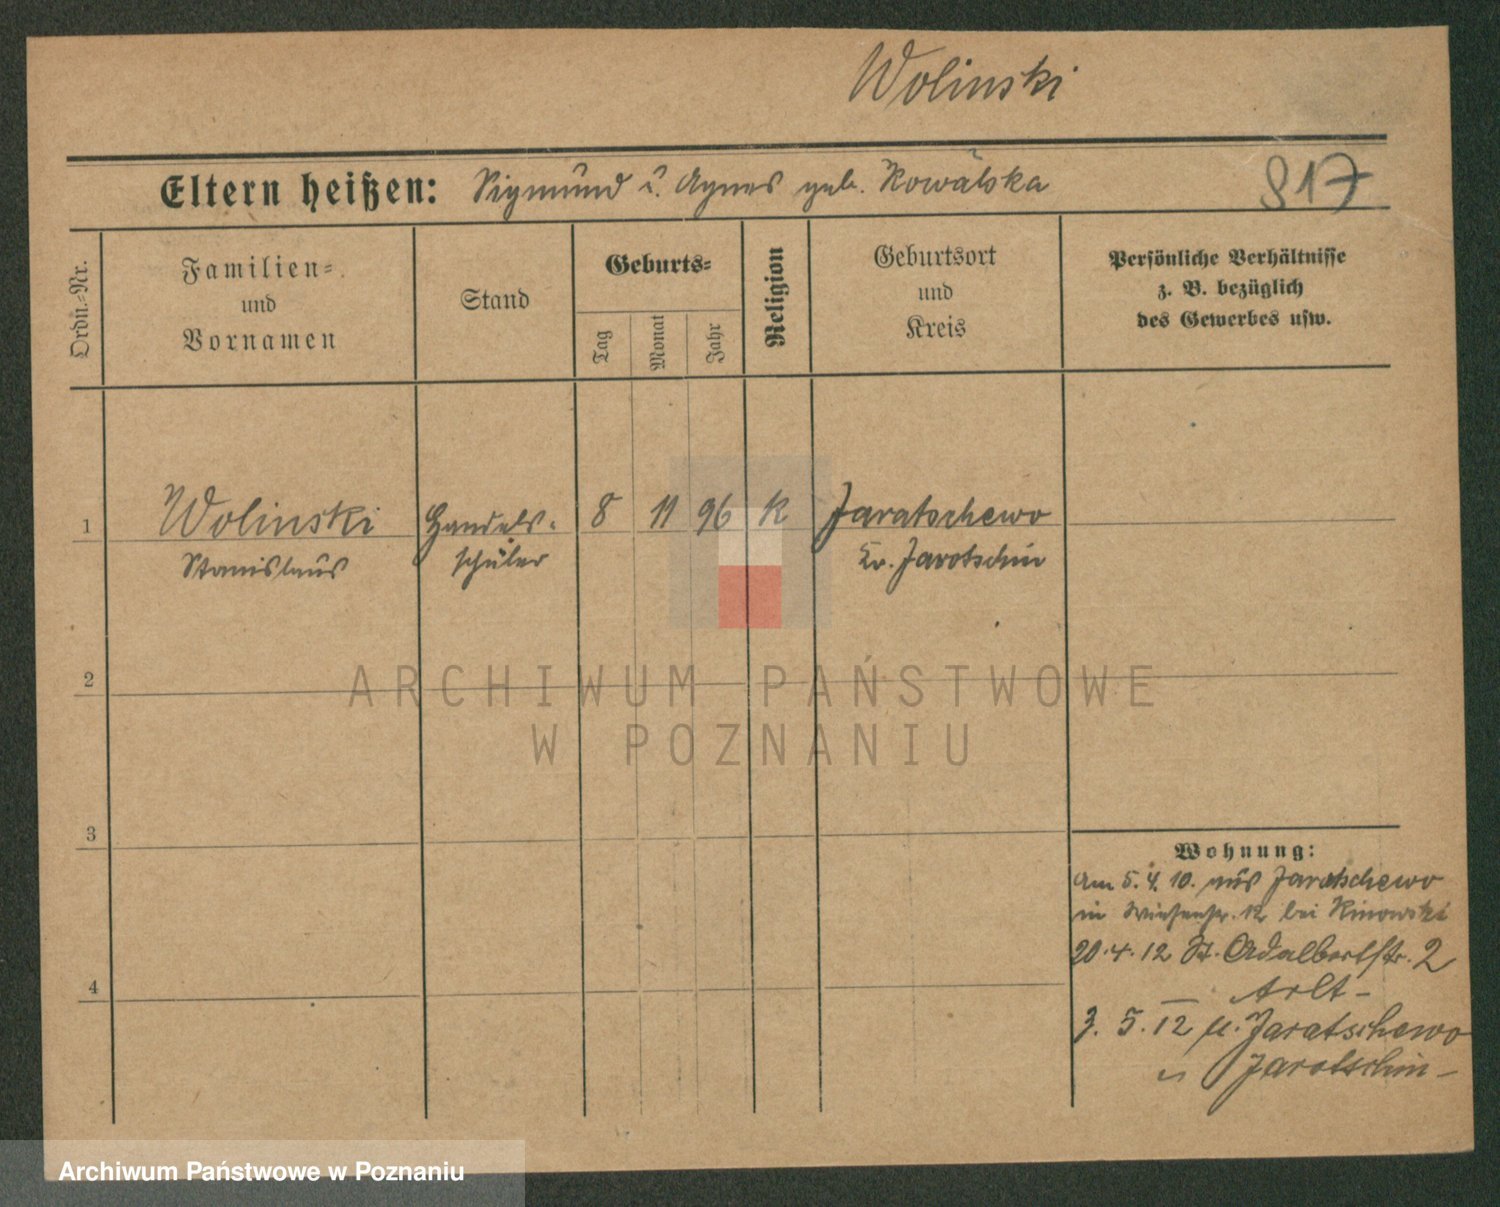 Wolinski
Eltern heißen: Sigmund u. Agnes geb. Kowalska
817
Ordn.-Nr.
Familien-
und
Vornamen
Stand
Geburts-
Tag
Monat
Jahr
Religion
Geburtsort
und
Kreis
Persönliche Verhältnisse
z. B. bezüglich
des Gewerbes usw.
1
Wolinski Handels- 8 11 96 K Jaratschewo
Stanislaus schüler Kr. Jarotschin
2
3
4
Wohnung:
Am 5.4.10. aus Jaratschewo
in Wiesenstr. 12 bei Kinowski
20.4.12 St. Adalbertstr. 2
Arlt -
3. 5. 12 n. Jaratschewo
Jarotschin -
ARCHIWUM PAŃSTWOWE
W POZNANIU
Archiwum Państwowe w Poznaniu